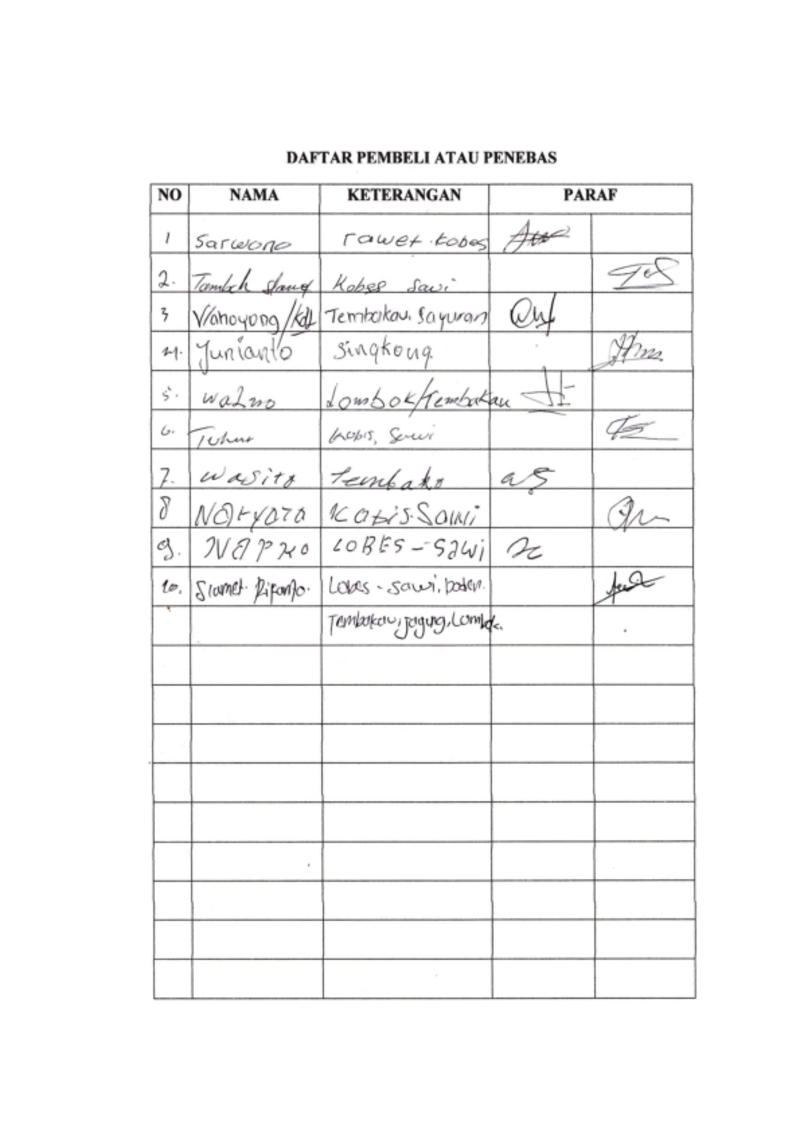 DAFTAR PEMBELI ATAU PENEBAS
NO NAMA KETERANGAN PARAF
1 Sarwono rawet.kobes
2. Tambah Kobes Sawi
3 Wahoyong/Kdl Tembakau. Sayuran
4. Junianto Singkong.
5. Walno Lombok/Tembakau
6. Tuhur kobis, Sawi
7. Wasito tembako
8 NARYOTO KOBIS.SAWI
9. NAPKO LOBES - SAWI
10. Slamet. Riyanto. Lobes - sawi.
Tembakau, jagung, Lombok.